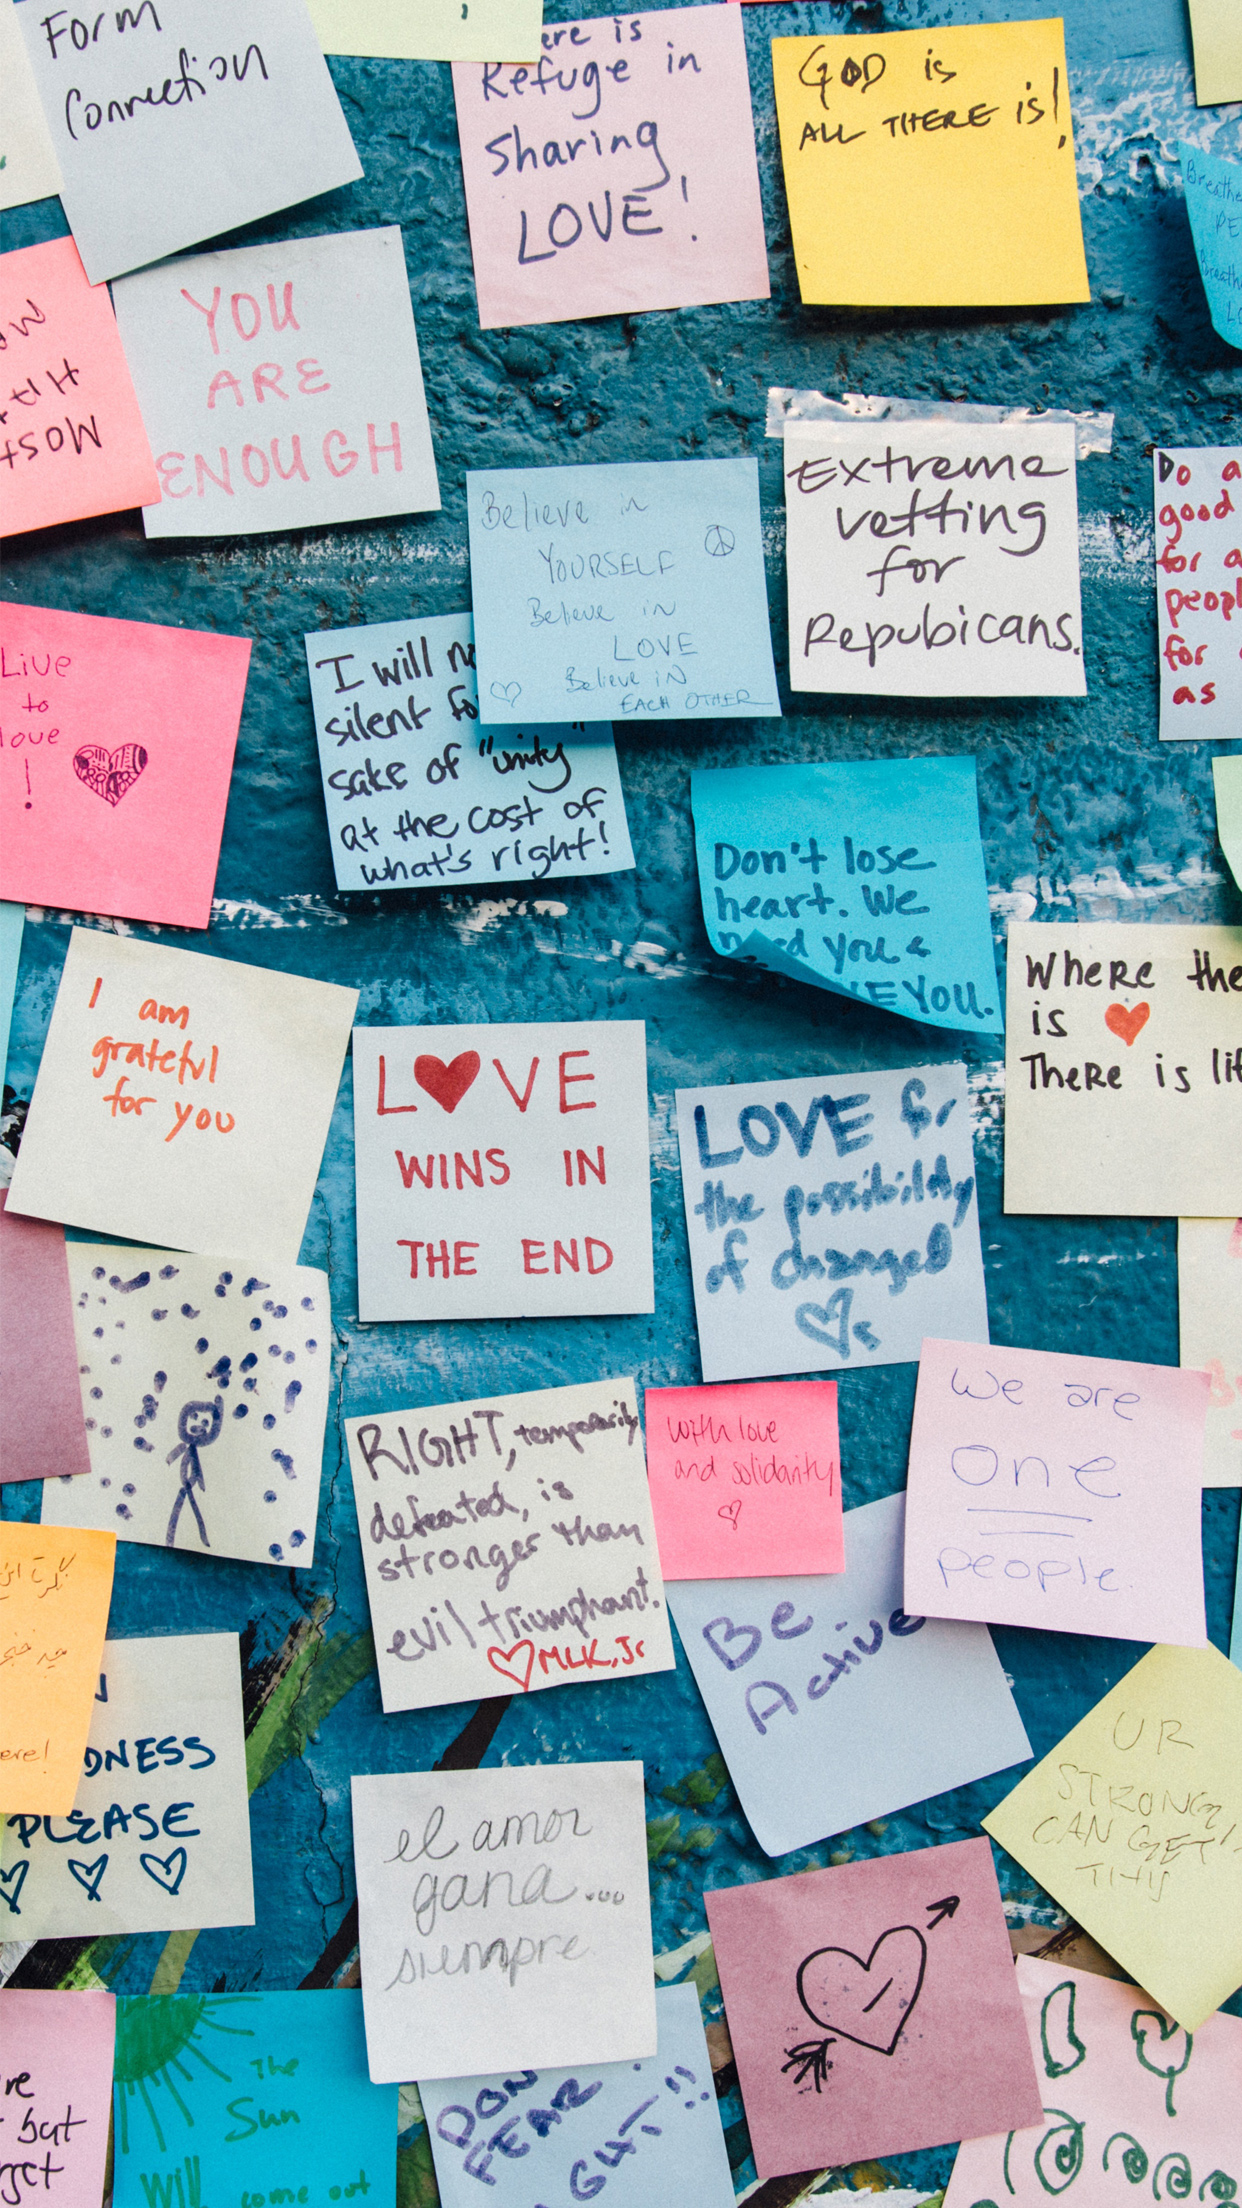 Form
Connection
is
Refuge in
Sharing
LOVE!
GOD is
ALL THERE is!
Breathe
Breathe
YOU
ARE
ENOUGH
MOST
Believe in
YOURSELF
Believe in
LOVE
Believe in
EACH OTHER
Extreme
vetting
for
Repubicans.
Do a
good
for
people
for
as
Live
to
love
!
I will
silent
sake of "unity"
at the cost of
what's right!
Don't lose
heart. We
you &
YOU.
I am
grateful
for you
L♥VE
WINS IN
THE END
Where
is ♥
There is
LOVE for
the possibility
of changed
♡s
RIGHT, temporarily
defeated, is
stronger than
evil triumphant.
♡ MLK, Jr
with love
and solidarity
♡
We are
One
people.
Be
Active
PLEASE
♡ ♡ ♡
el amor
gana...
siempre
UR
STRONG
CAN GET
THIS
but
The
Sun
Will come out
FEAR